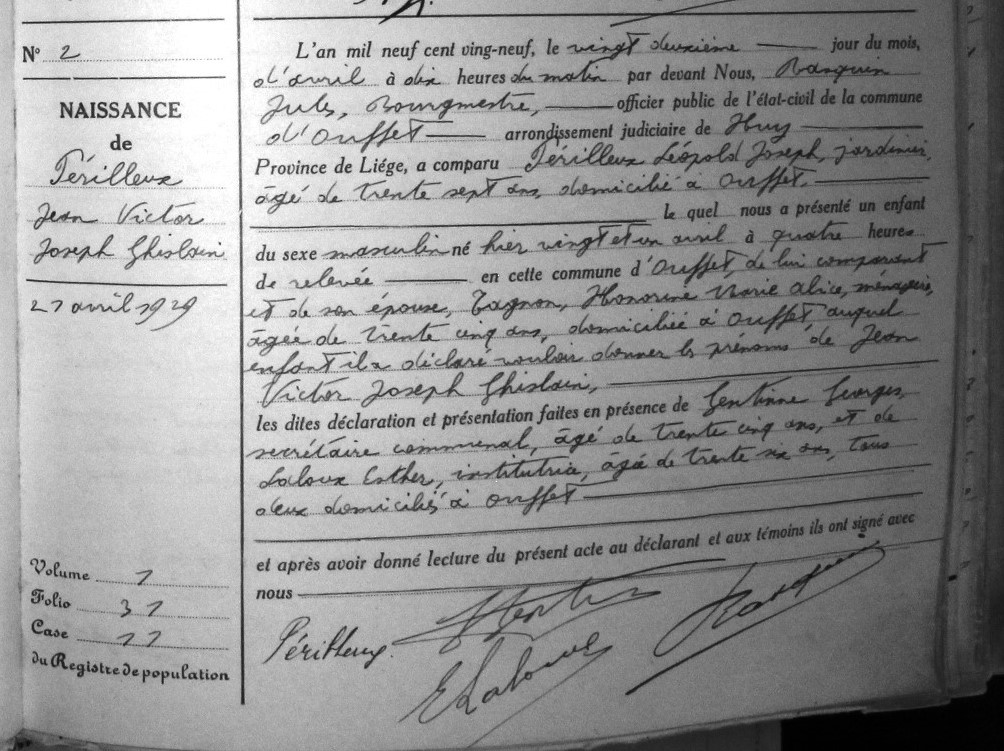 N° 2
NAISSANCE
de
Périlleux
Jean Victor
Joseph Ghislain
21 avril 1929
Volume 1
Folio 31
Case 11
du Registre de population
L'an mil neuf cent ving-neuf, le vingt deuxième jour du mois,
d'avril à dix heures du matin par devant Nous, Ranquin
Jules, Bourgmestre, officier public de l'état-civil de la commune
d'Ouffet arrondissement judiciaire de Huy
Province de Liége, a comparu Périlleux Léopold Joseph, jardinier,
âgé de trente sept ans, domicilié à Ouffet.
le quel nous a présenté un enfant
du sexe masculin né hier vingt et un avril à quatre heures
de relevée en cette commune d'Ouffet, de lui comparant
et de son épouse, Tagnon, Honorine Marie Alice, ménagère,
âgée de trente cinq ans, domiciliée à Ouffet auquel
enfant il a déclaré vouloir donner les prénoms de Jean
Victor Joseph Ghislain,
les dites déclaration et présentation faites en présence de Gentinne Georges,
secrétaire communal, âgé de trente cinq ans, et de
Laloux Esther, institutrice, âgée de trente six ans, tous
deux domiciliés à Ouffet
et après avoir donné lecture du présent acte au déclarant et aux témoins ils ont signé avec
nous
Périlleux.
E Laloux